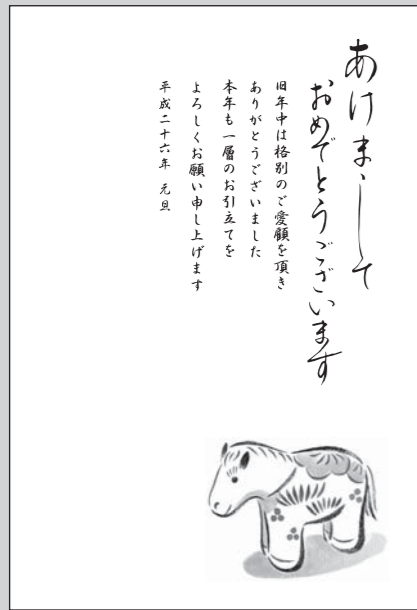 あけまして
おめでとうございます
旧年中は格別のご愛顧を頂き
ありがとうございました
本年も一層のお引立てを
よろしくお願い申し上げます
平成二十六年 元旦